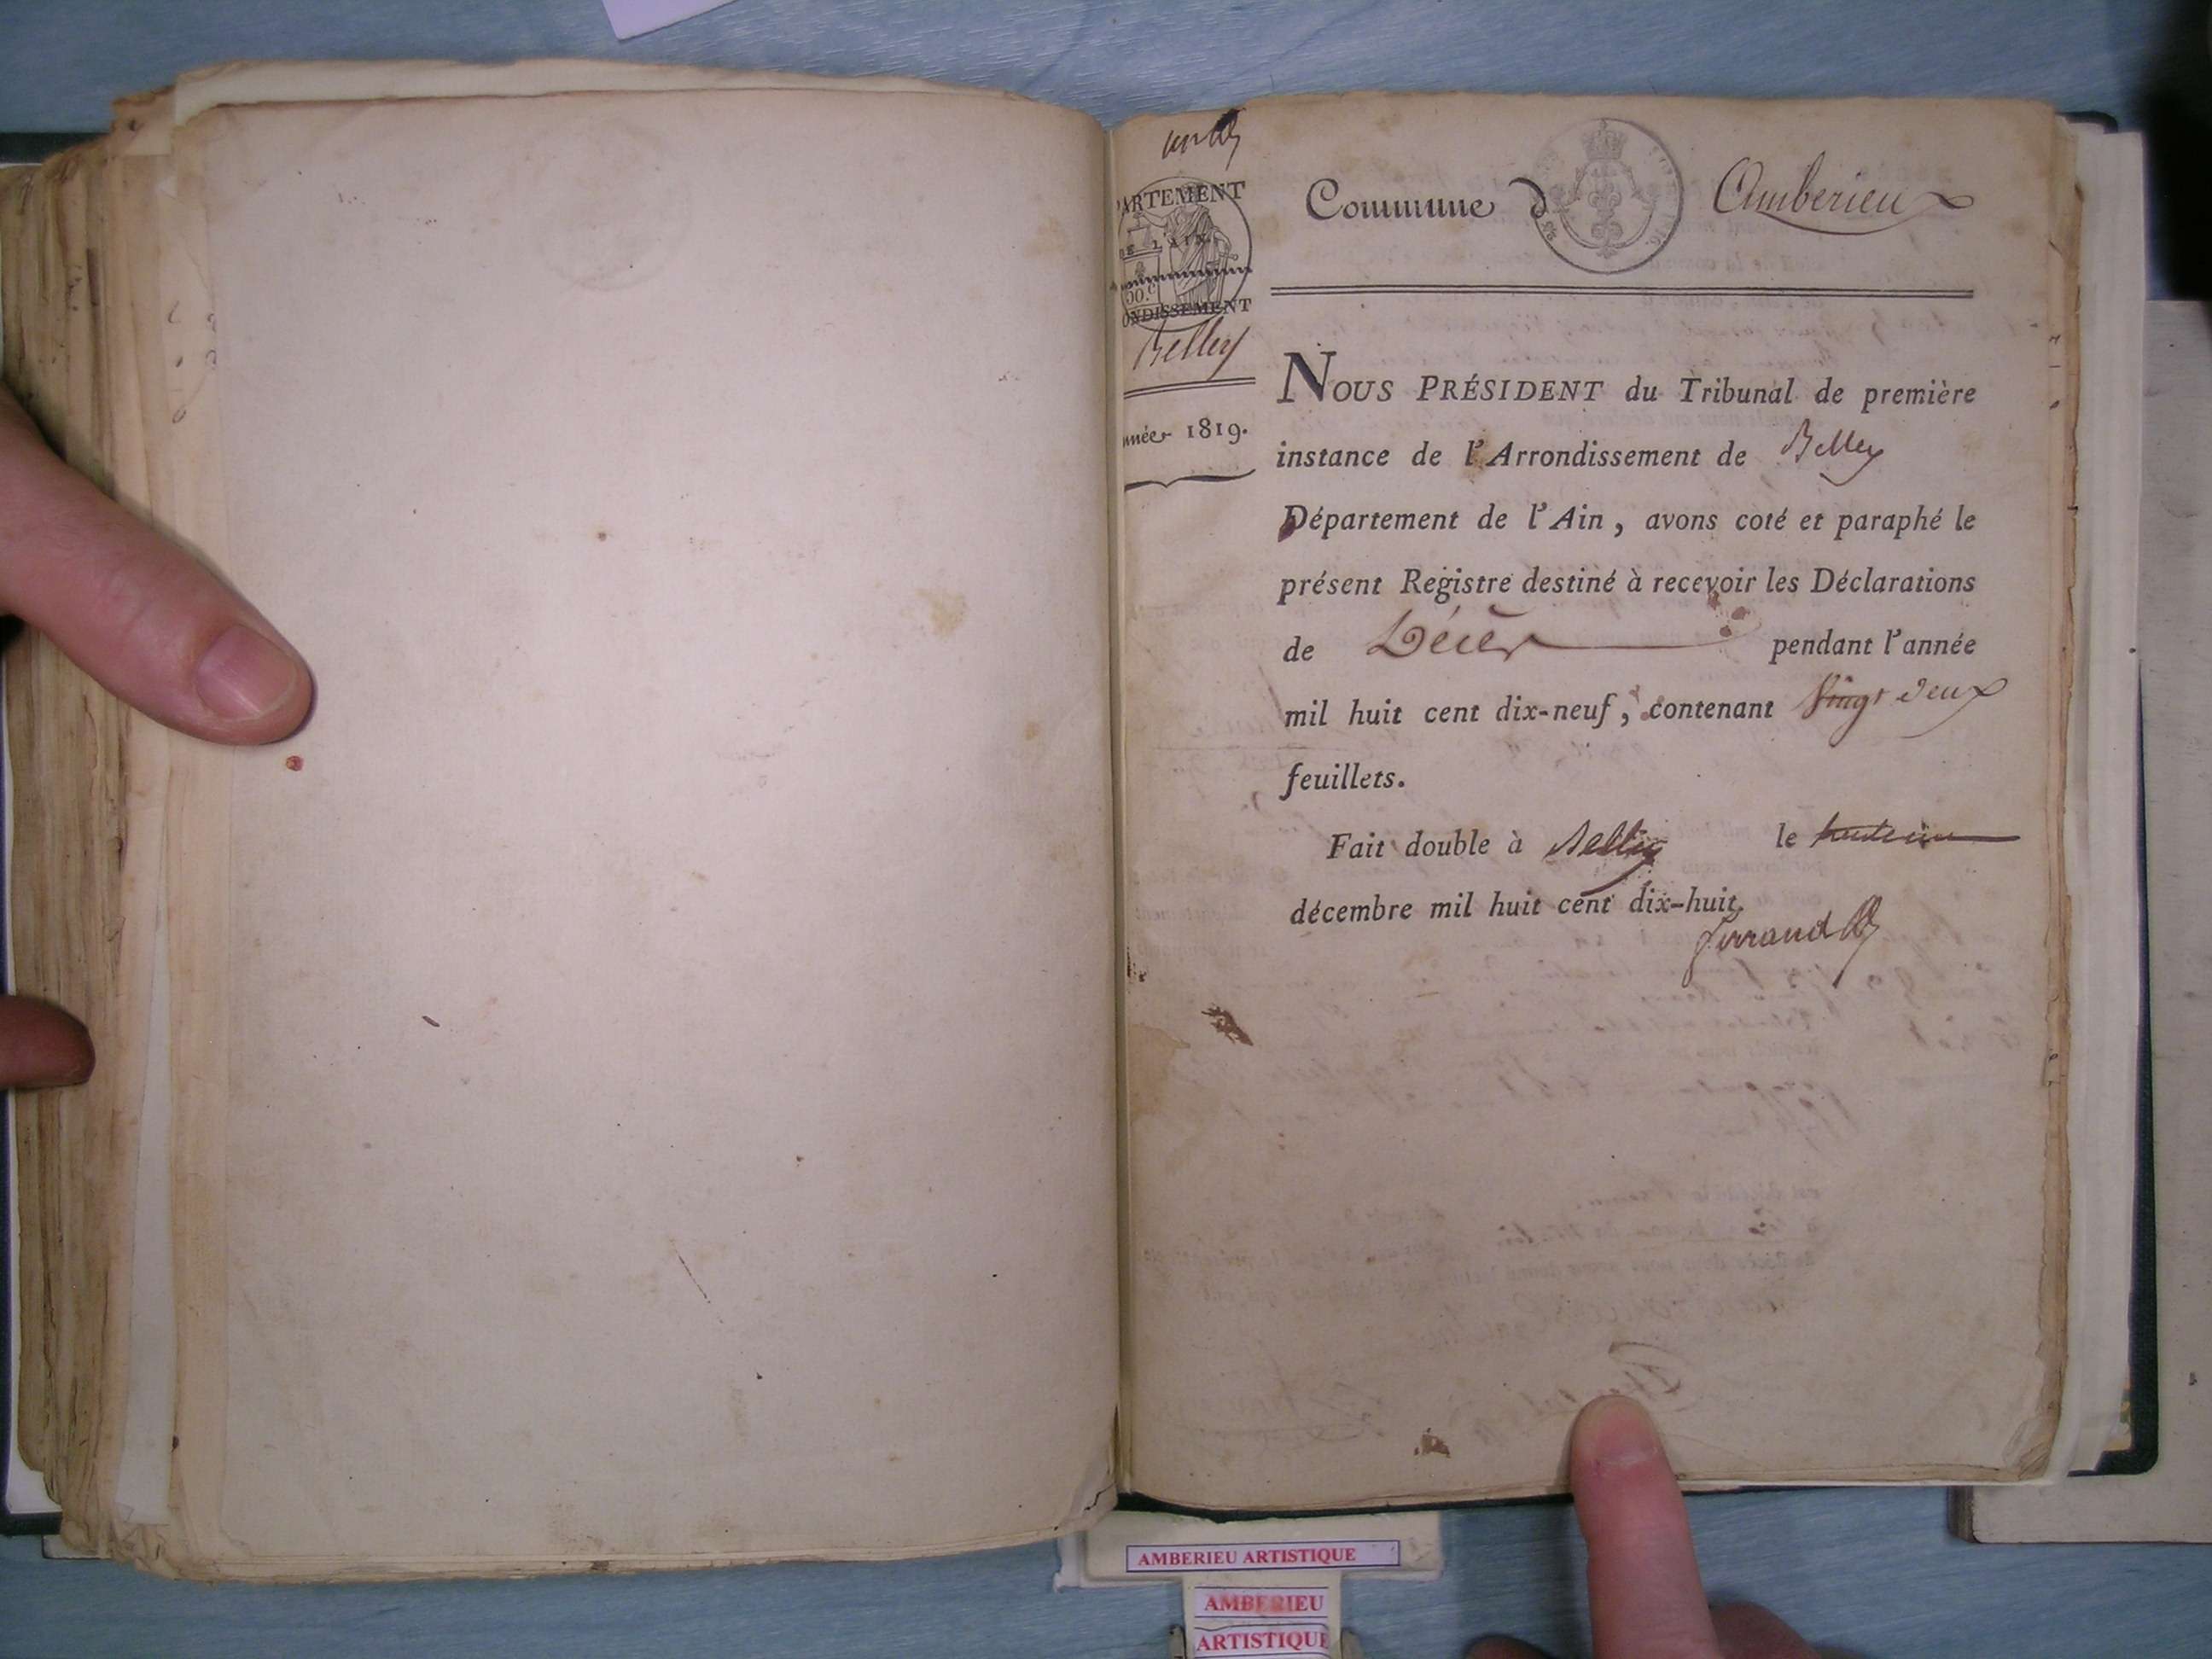 ARTEMENT
DE L'AIN
ONDISSEMENT
Belley
nnée 1819.
Commune d Amberieu
NOUS PRÉSIDENT du Tribunal de première
instance de l'Arrondissement de Belley
Département de l'Ain, avons coté et paraphé le
présent Registre destiné à recevoir les Déclarations
de Décès pendant l'année
mil huit cent dix-neuf, contenant Vingt deux
feuillets.
Fait double à Belley le
décembre mil huit cent dix-huit.
AMBERIEU ARTISTIQUE
AMBERIEU
ARTISTIQUE